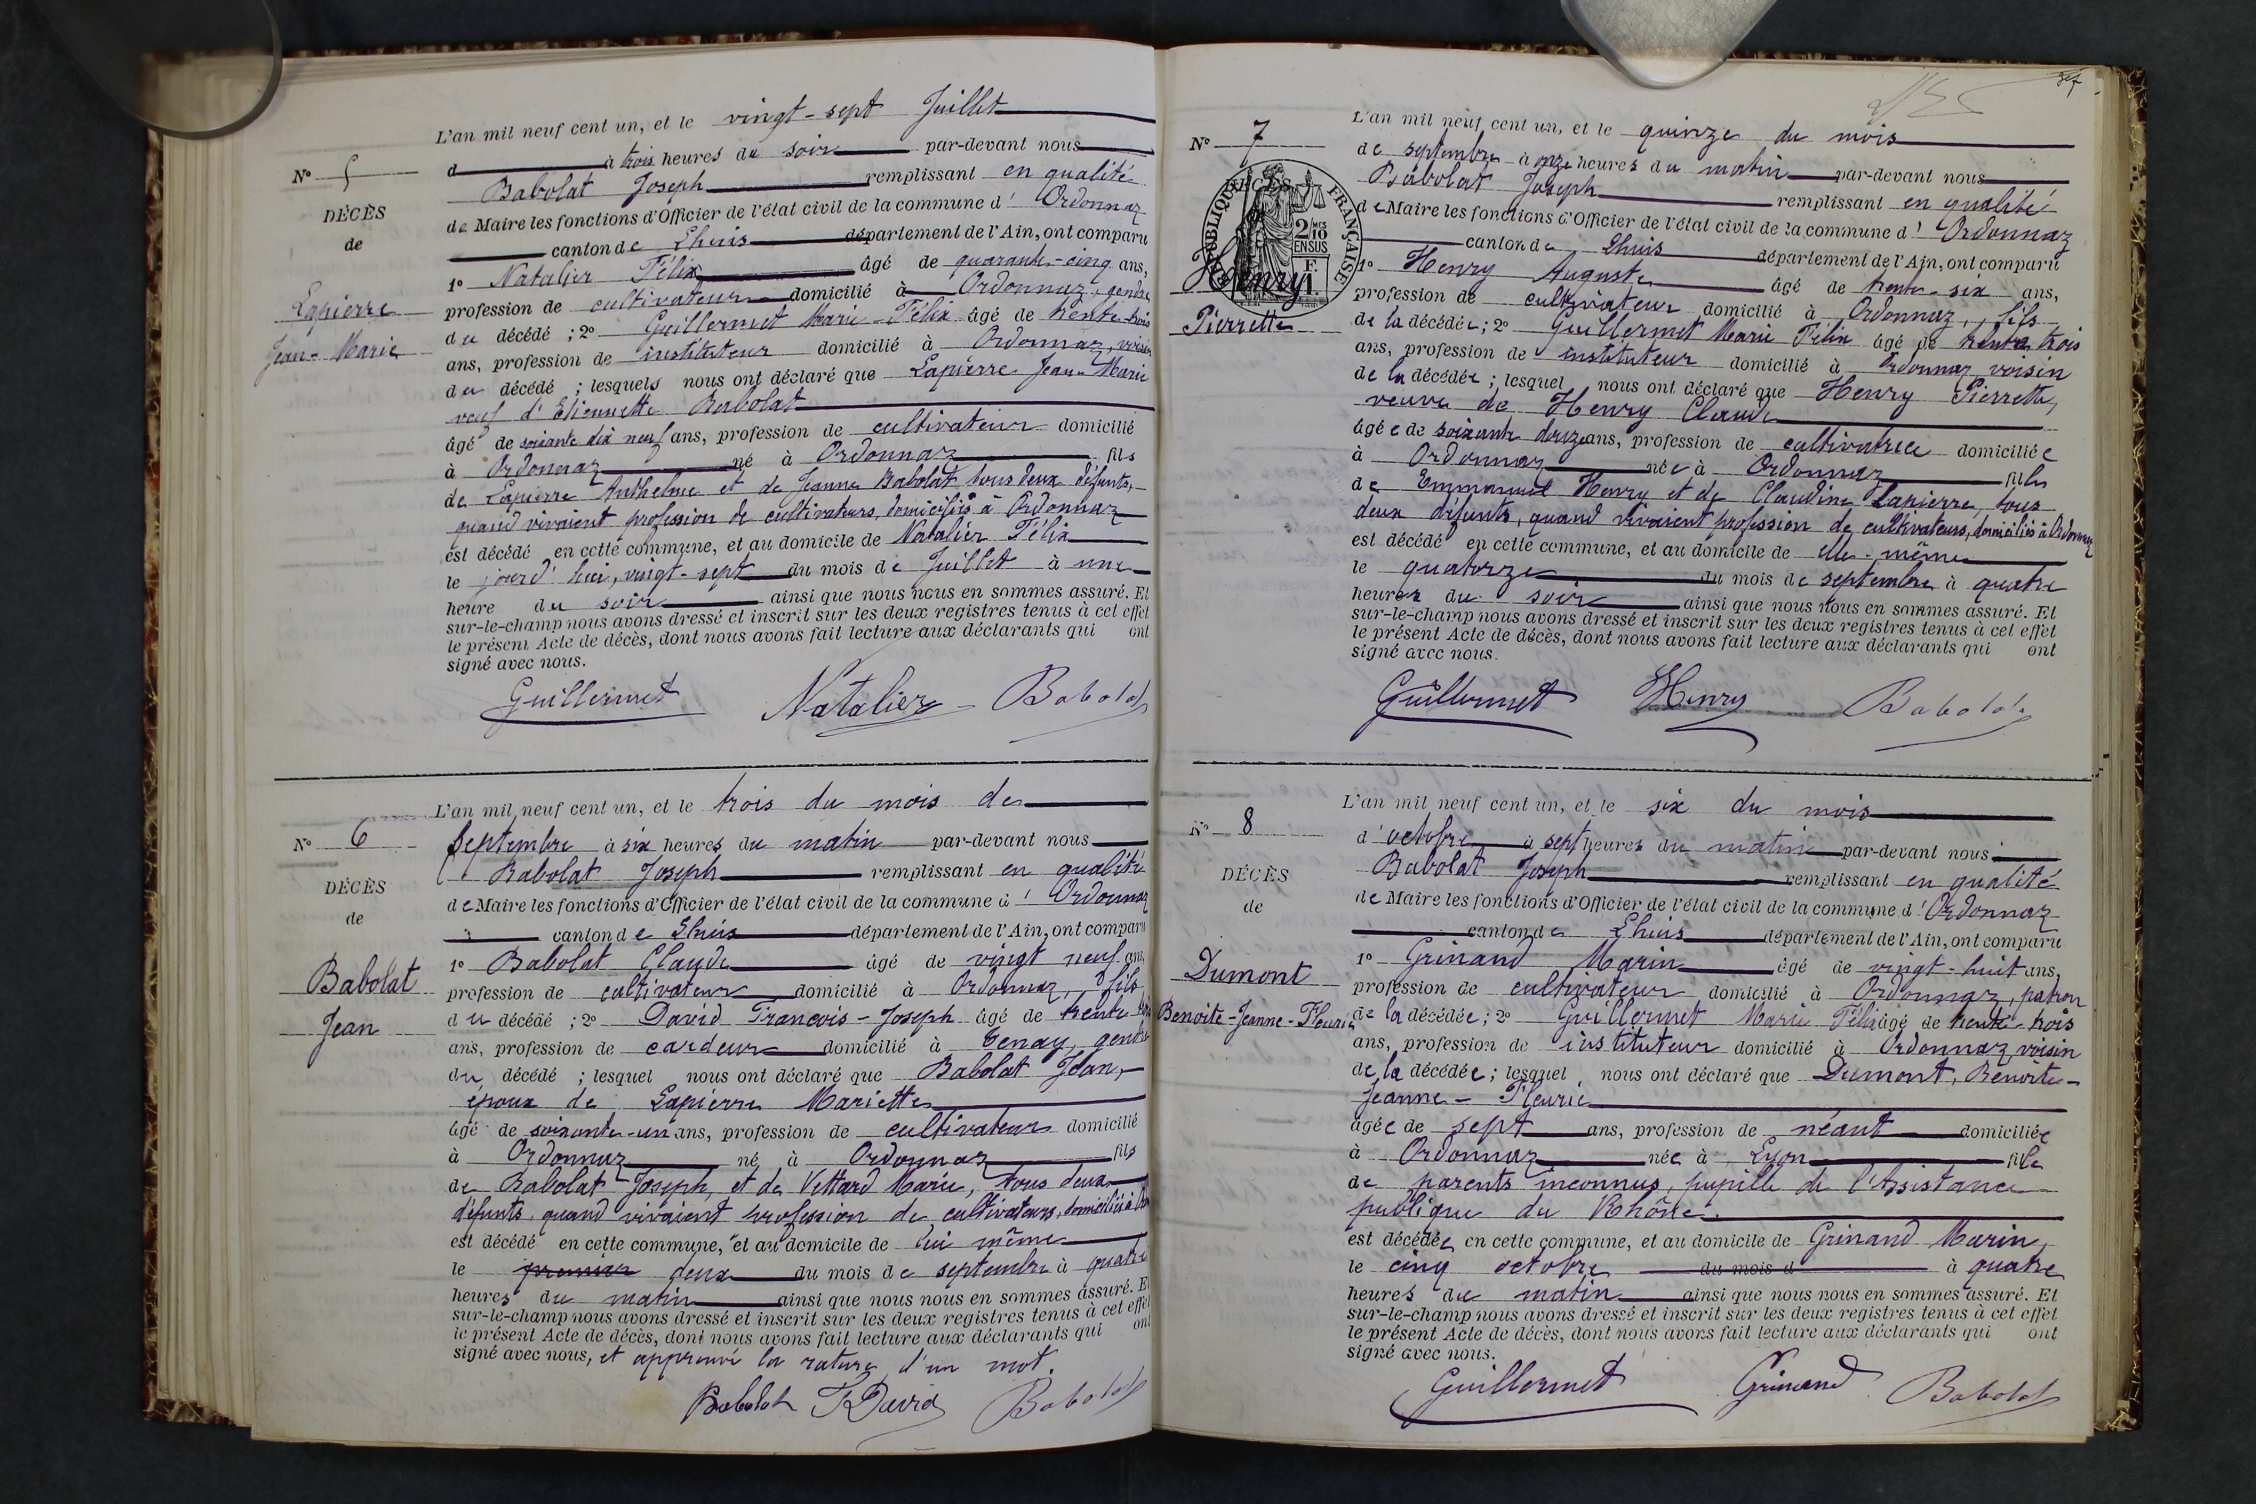 L'an mil neuf cent un, et le vingt-sept Juillet
N° 5
d à trois heures du soir par-devant nous
Babolat Joseph remplissant en qualité
DÉCÈS
de Maire les fonctions d'Officier de l'état civil de la commune d' Ordonnaz
de
canton de Lhuis département de l'Ain, ont comparu
1° Natalier Félix âgé de quarante-cinq ans,
Lapierre
profession de cultivateur domicilié à Ordonnaz, gendre
du décédé ; 2° Guillermet Marie-Félix âgé de trente-trois
Jean-Marie
ans, profession de instituteur domicilié à Ordonnaz, voisin
du décédé ; lesquels nous ont déclaré que Lapierre Jean-Marie
veuf d'Etiennette Babolat
âgé de soixante dix neuf ans, profession de cultivateur domicilié
à Ordonnaz né à Ordonnaz fils
de Lapierre Anthelme et de Jeanne Babolat tous deux défunts,
quand vivaient profession de cultivateurs, domiciliés à Ordonnaz
est décédé en cette commune, et au domicile de Natalier Félix
le jourd'hui, vingt-sept du mois de Juillet à une
heure du soir ainsi que nous nous en sommes assuré. Et
sur-le-champ nous avons dressé et inscrit sur les deux registres tenus à cet effet
le présent Acte de décès, dont nous avons fait lecture aux déclarants qui ont
signé avec nous.
Guillermet Natalier Babolat
L'an mil neuf cent un, et le trois du mois de
N° 6
Septembre à six heures du matin par-devant nous
Babolat Joseph remplissant en qualité
DÉCÈS
de Maire les fonctions d'Officier de l'état civil de la commune d' Ordonnaz
de
canton de Lhuis département de l'Ain, ont comparu
1° Babolat Claude âgé de vingt neuf ans,
Babolat
profession de cultivateur domicilié à Ordonnaz, fils
Jean
du décédé ; 2° David Francois-Joseph âgé de trente trois
ans, profession de cardeur domicilié à Tenay, gendre
du décédé ; lesquel nous ont déclaré que Babolat Jean,
époux de Lapierre Mariette
âgé de soixante-un ans, profession de cultivateur domicilié
à Ordonnaz né à Ordonnaz fils
de Babolat Joseph, et de Vettard Marie, tous deux
défunts, quand vivaient profession de cultivateurs, domiciliés à
est décédé en cette commune, et au domicile de lui même
le premier deux du mois de septembre à quatre
heures du matin ainsi que nous nous en sommes assuré. Et
sur-le-champ nous avons dressé et inscrit sur les deux registres tenus à cet effet
le présent Acte de décès, dont nous avons fait lecture aux déclarants qui ont
signé avec nous, et approuvé la rature d'un mot.
Babolat David Babolat
37
L'an mil neuf cent un, et le quinze du mois
N° 7
de septembre à onze heures du matin par-devant nous
Babolat Joseph remplissant en qualité
DÉCÈS
RÉPUBLIQUE FRANÇAISE
2/10 MES
EN SUS
de Maire les fonctions d'Officier de l'état civil de la commune d' Ordonnaz
canton de Lhuis département de l'Ain, ont comparu
Henry
1° Henry Auguste âgé de trente-six ans,
profession de cultivateur domicilié à Ordonnaz, fils
Pierrette
de la décédée ; 2° Guillermet Marie Félix âgé de trente trois
ans, profession de instituteur domicilié à Ordonnaz voisin
de la décédée ; lesquel nous ont déclaré que Henry Pierrette,
veuve de Henry Claude
âgée de soixante douze ans, profession de cultivatrice domiciliée
à Ordonnaz née à Ordonnaz fille
de Emmanuel Henry et de Claudine Lapierre, tous
deux défunts, quand vivaient profession de cultivateurs, domiciliés à Ordonnaz
est décédé en cette commune, et au domicile de elle-même
le quatorze du mois de septembre à quatre
heures du soir ainsi que nous nous en sommes assuré. Et
sur-le-champ nous avons dressé et inscrit sur les deux registres tenus à cet effet
le présent Acte de décès, dont nous avons fait lecture aux déclarants qui ont
signé avec nous.
Guillermet Henry Babolat
L'an mil neuf cent un, et le six du mois
N° 8
d'octobre à sept heures du matin par-devant nous
Babolat Joseph remplissant en qualité
DÉCÈS
de Maire les fonctions d'Officier de l'état civil de la commune d' Ordonnaz
de
canton de Lhuis département de l'Ain, ont comparu
1° Grinand Marin âgé de vingt-huit ans,
Dumont
profession de cultivateur domicilié à Ordonnaz, patron
Benoite-Jeanne-Fleurie
de la décédée ; 2° Guillermet Marie Félix âgé de trente-trois
ans, profession de instituteur domicilié à Ordonnaz, voisin
de la décédée ; lesquel nous ont déclaré que Dumont, Benoite-
Jeanne-Fleurie
âgée de sept ans, profession de néant domiciliée
à Ordonnaz née à Lyon fille
de parents inconnus, pupille de l'Assistance
publique du Rhône.
est décédée en cette commune, et au domicile de Grinand Marin,
le cinq octobre du mois d à quatre
heures du matin ainsi que nous nous en sommes assuré. Et
sur-le-champ nous avons dressé et inscrit sur les deux registres tenus à cet effet
le présent Acte de décès, dont nous avons fait lecture aux déclarants qui ont
signé avec nous.
Guillermet Grinand Babolat